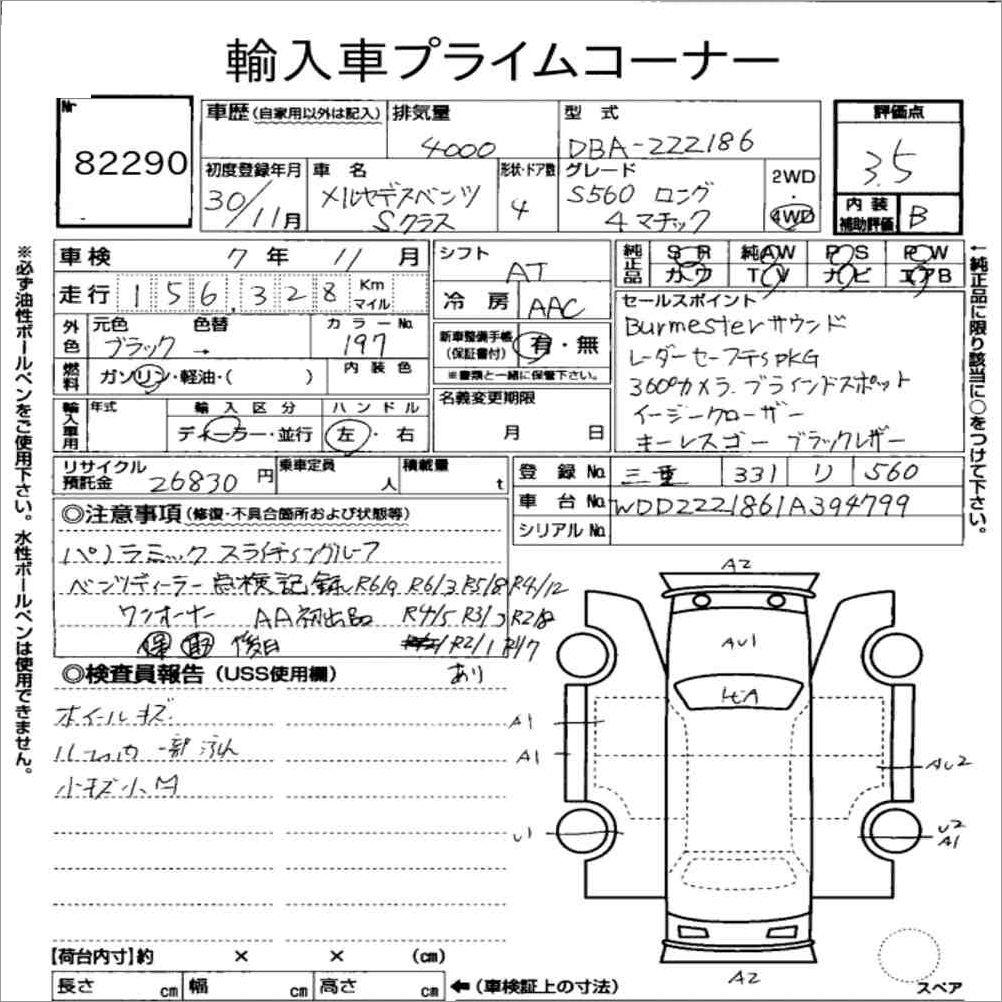 輸入車プライムコーナー
Nr
82290
車歴 (自家用以外は記入)
排気量
4000
型 式
DBA-222186
評価点
3.5
初度登録年月
30/11月
車 名
メルセデスベンツ
Sクラス
形状・ドア数
4
グレード
S560 ロング
4マチック
2WD
・
4WD
内装
補助評価
B
車検
7 年 11 月
シフト
AT
純正品
SR 純AW PS PW
カワ TV ナビ エアB
走行 156,328 Km
マイル
冷 房
AAC
セールスポイント
Burmesterサウンド
レーダーセーフティPKG
360°カメラ. ブラインドスポット
イージークローザー
キーレスゴー ブラックレザー
外色
元色 色替
ブラック →
カラーNo.
197
新車整備手帳
(保証書付)
有・無
※書類と一緒に保管下さい。
燃料
ガソリン・軽油・( )
内装色
名義変更期限
月 日
輸入車用
年式
輸入区分
ディーラー・並行
ハンドル
左・右
リサイクル
預託金
26830 円
乗車定員
人
積載量
t
登録No.
三重 331 リ 560
車台No.
WDD2221861A394799
シリアルNo.
◎注意事項 (修復・不具合箇所および状態等)
パノラミック スライディングルーフ
ベンツディーラー 点検記録 R6/9 R6/3 R5/8 R4/12
ワンオーナー AA初出品 R4/5 R3/ R2/8
保 取 後日 R2/1 R1/7
あり
◎検査員報告 (USS使用欄)
ホイールキズ
ルーフ内 一部
小キズ小凹
A2
AU1
A1
A1
AU2
U1
U2
A1
A2
スペア
【荷台内寸】約 × × (cm)
長さ cm 幅 cm 高さ cm
←(車検証上の寸法)
※必ず油性ボールペンをご使用下さい。水性ボールペンは使用できません。
←純正品に限り該当に○をつけて下さい。